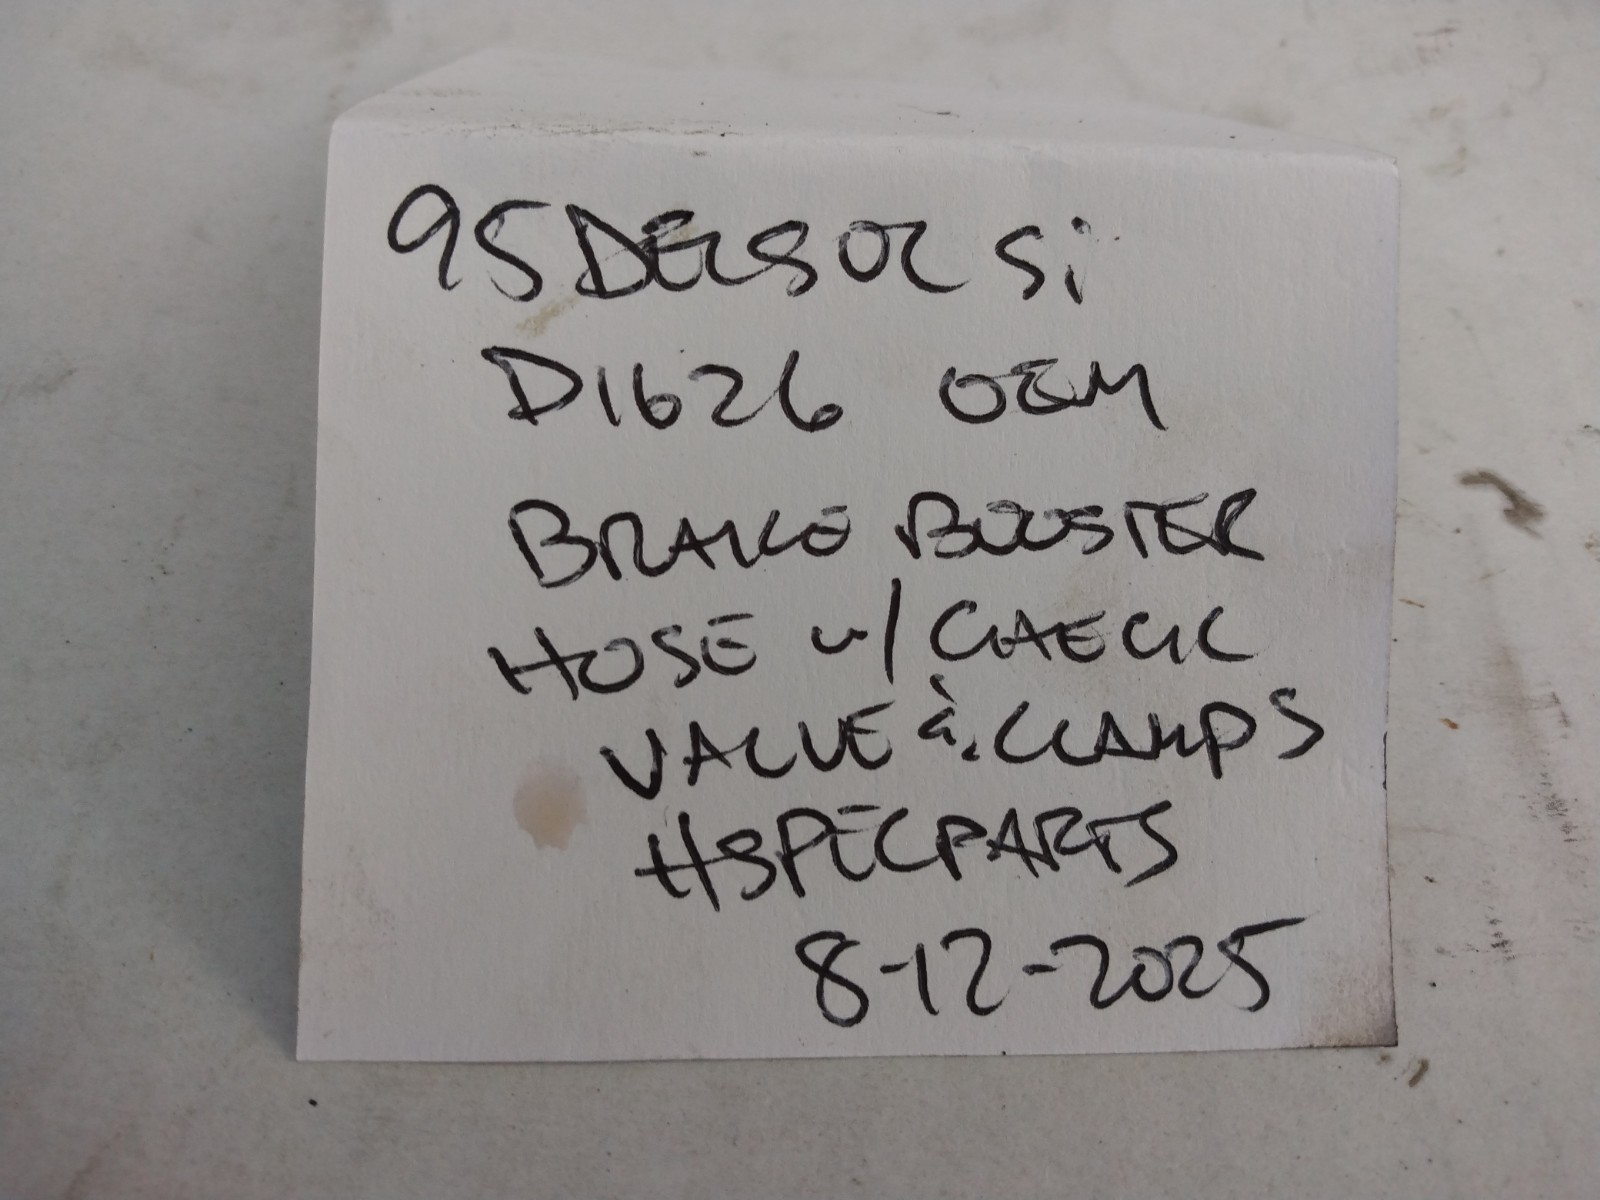 95 DELSOL Si
D1626 OEM
BRAKE BOOSTER
HOSE w/ CHECK
VALVE &. CLAMPS
HSPECPARTS
8-12-2025